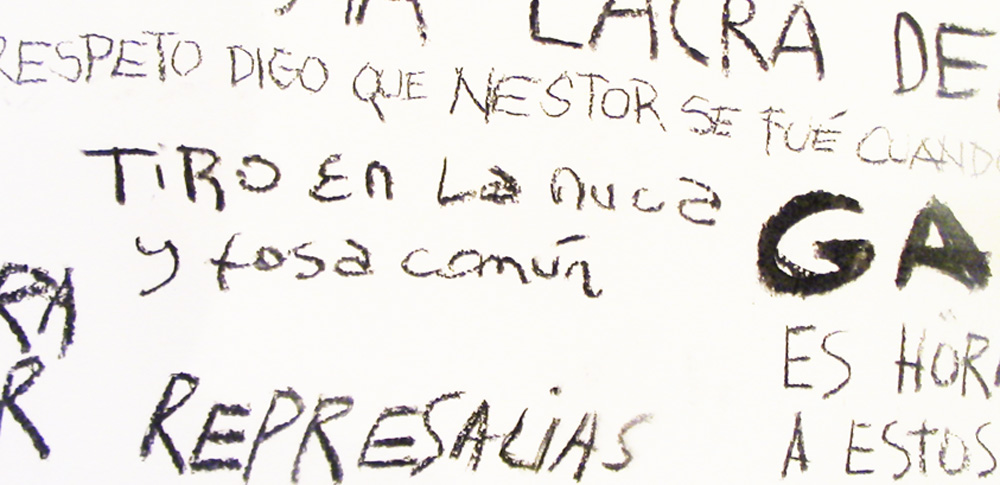 LACRA DE
RESPETO DIGO QUE NESTOR SE FUÉ CUANDO
TiRO En La nuca
y fosa común
GA
ES HOR
R REPRESALiAS
A ESTOS